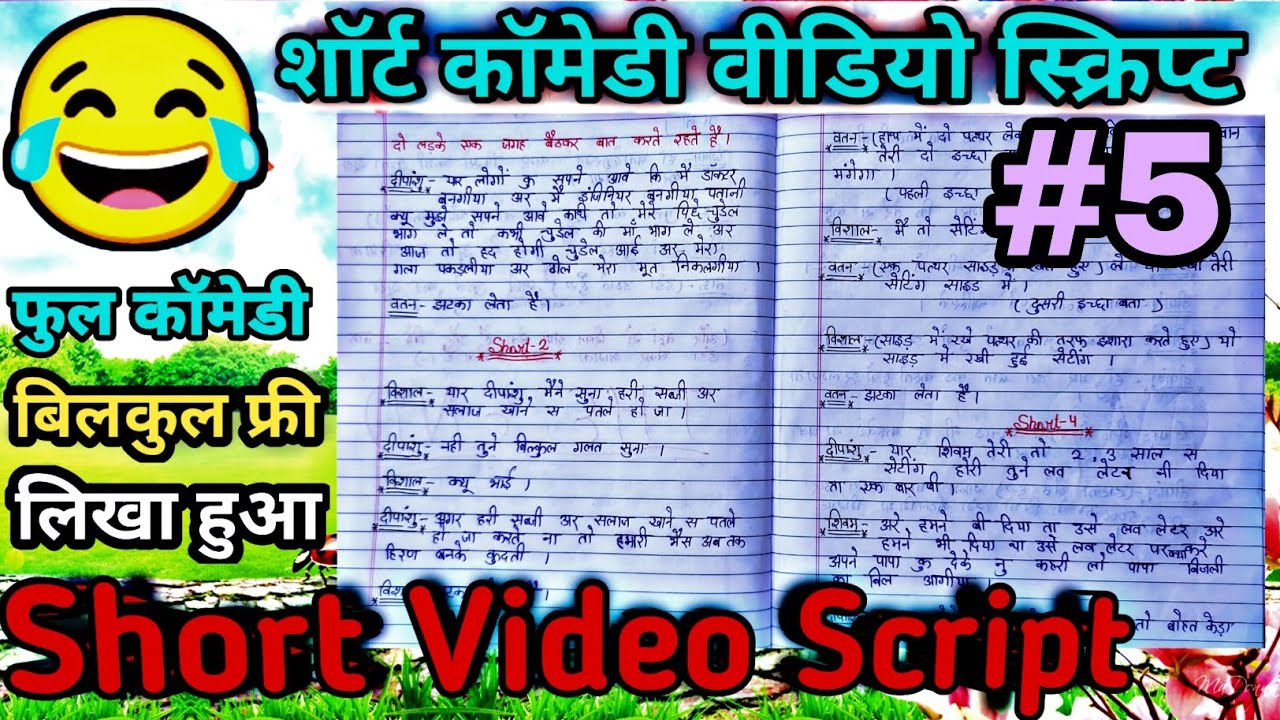 शॉर्ट कॉमेडी वीडियो स्क्रिप्ट
#5
फुल कॉमेडी
बिलकुल फ्री
लिखा हुआ
दो लड़के एक जगह बैठकर बात करते रहते हैं।
दीपांशु - यार लोगों कु सुपने आवे कि मैं डाक्टर
बनगीया अर मैं इंजिनियर बनगीया पतानी
क्यू मुझे सपने आवे कभी तो मेरे पिछे चुडेल
भाग ले तो कभी चुडेल की माँ भाग ले अर
आज तो हद होगी चुडेल आई अर मेरा
गला पकडलीया अर बोल मेरा भूत निकलगीया।
वतन - झटका लेता है।
Short-2
विशाल - यार दीपांशु, मैंने सुना हरी सब्जी अर
सलाज खाने स पतले हो जा।
दीपांशु - नही तुने बिल्कुल गलत सुना।
विशाल - क्यू भाई।
दीपांशु - अगर हरी सब्जी अर सलाज खाने स पतले
हो जा करते ना तो हमारी भैंस अब तक
हिरण बनके कुदती।
वतन - (हाथ में दो पत्थर
तेरी दो इच्छा
मंगेगा।
(पहली इच्छा
विशाल - मैं तो सेटिंग
वतन - (एक पत्थर साइड तेरी
सेटिंग साइड में।
(दुसरी इच्छा बता)
विशाल - (साइड में रखे पत्थर की तरफ इशारा करते हुए) यो
साइड में रखी हुई सैटींग।
वतन - झटका लेता है।
Short-4
दीपांशु - यार शिवम तेरी तो 2,3 साल स
सेटींग होरी तुने लव लेटर भी दिया
ता एक बार बी।
शिवम - अरे हमने बी दिया ता उसे लव लेटर अरे
हमने भी दिया था उसे लव लेटर पर
अपने पापा कु देके नु कहरी लो पापा बिजली
का बिल आगीया।
तो बोहत केड़ा
Short Video Script